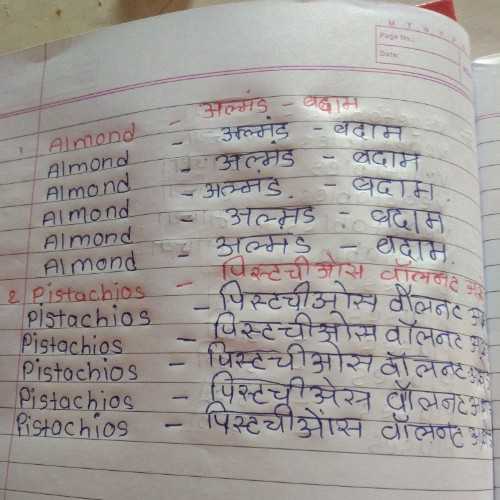 M T W T F
Page No.:
Date:
Almond - अल्मंड - बदाम
Almond - अल्मंड - बदाम
Almond - अल्मंड - बदाम
Almond - अल्मंड. - बदाम.
Almond - अल्मंड - बदाम
Almond - अल्मंड - बदाम.
2 Pistachios - पिस्टचीओस वॉलनट
Pistachios - पिस्टचीओस वॉलनट
Pistachios - पिस्टचीओस वॉलनट
Pistachios - पिस्टचीओस वॉलनट
Pistachios - पिस्टचीओस वॉलनट
Pistachios - पिस्टचीओस वॉलनट